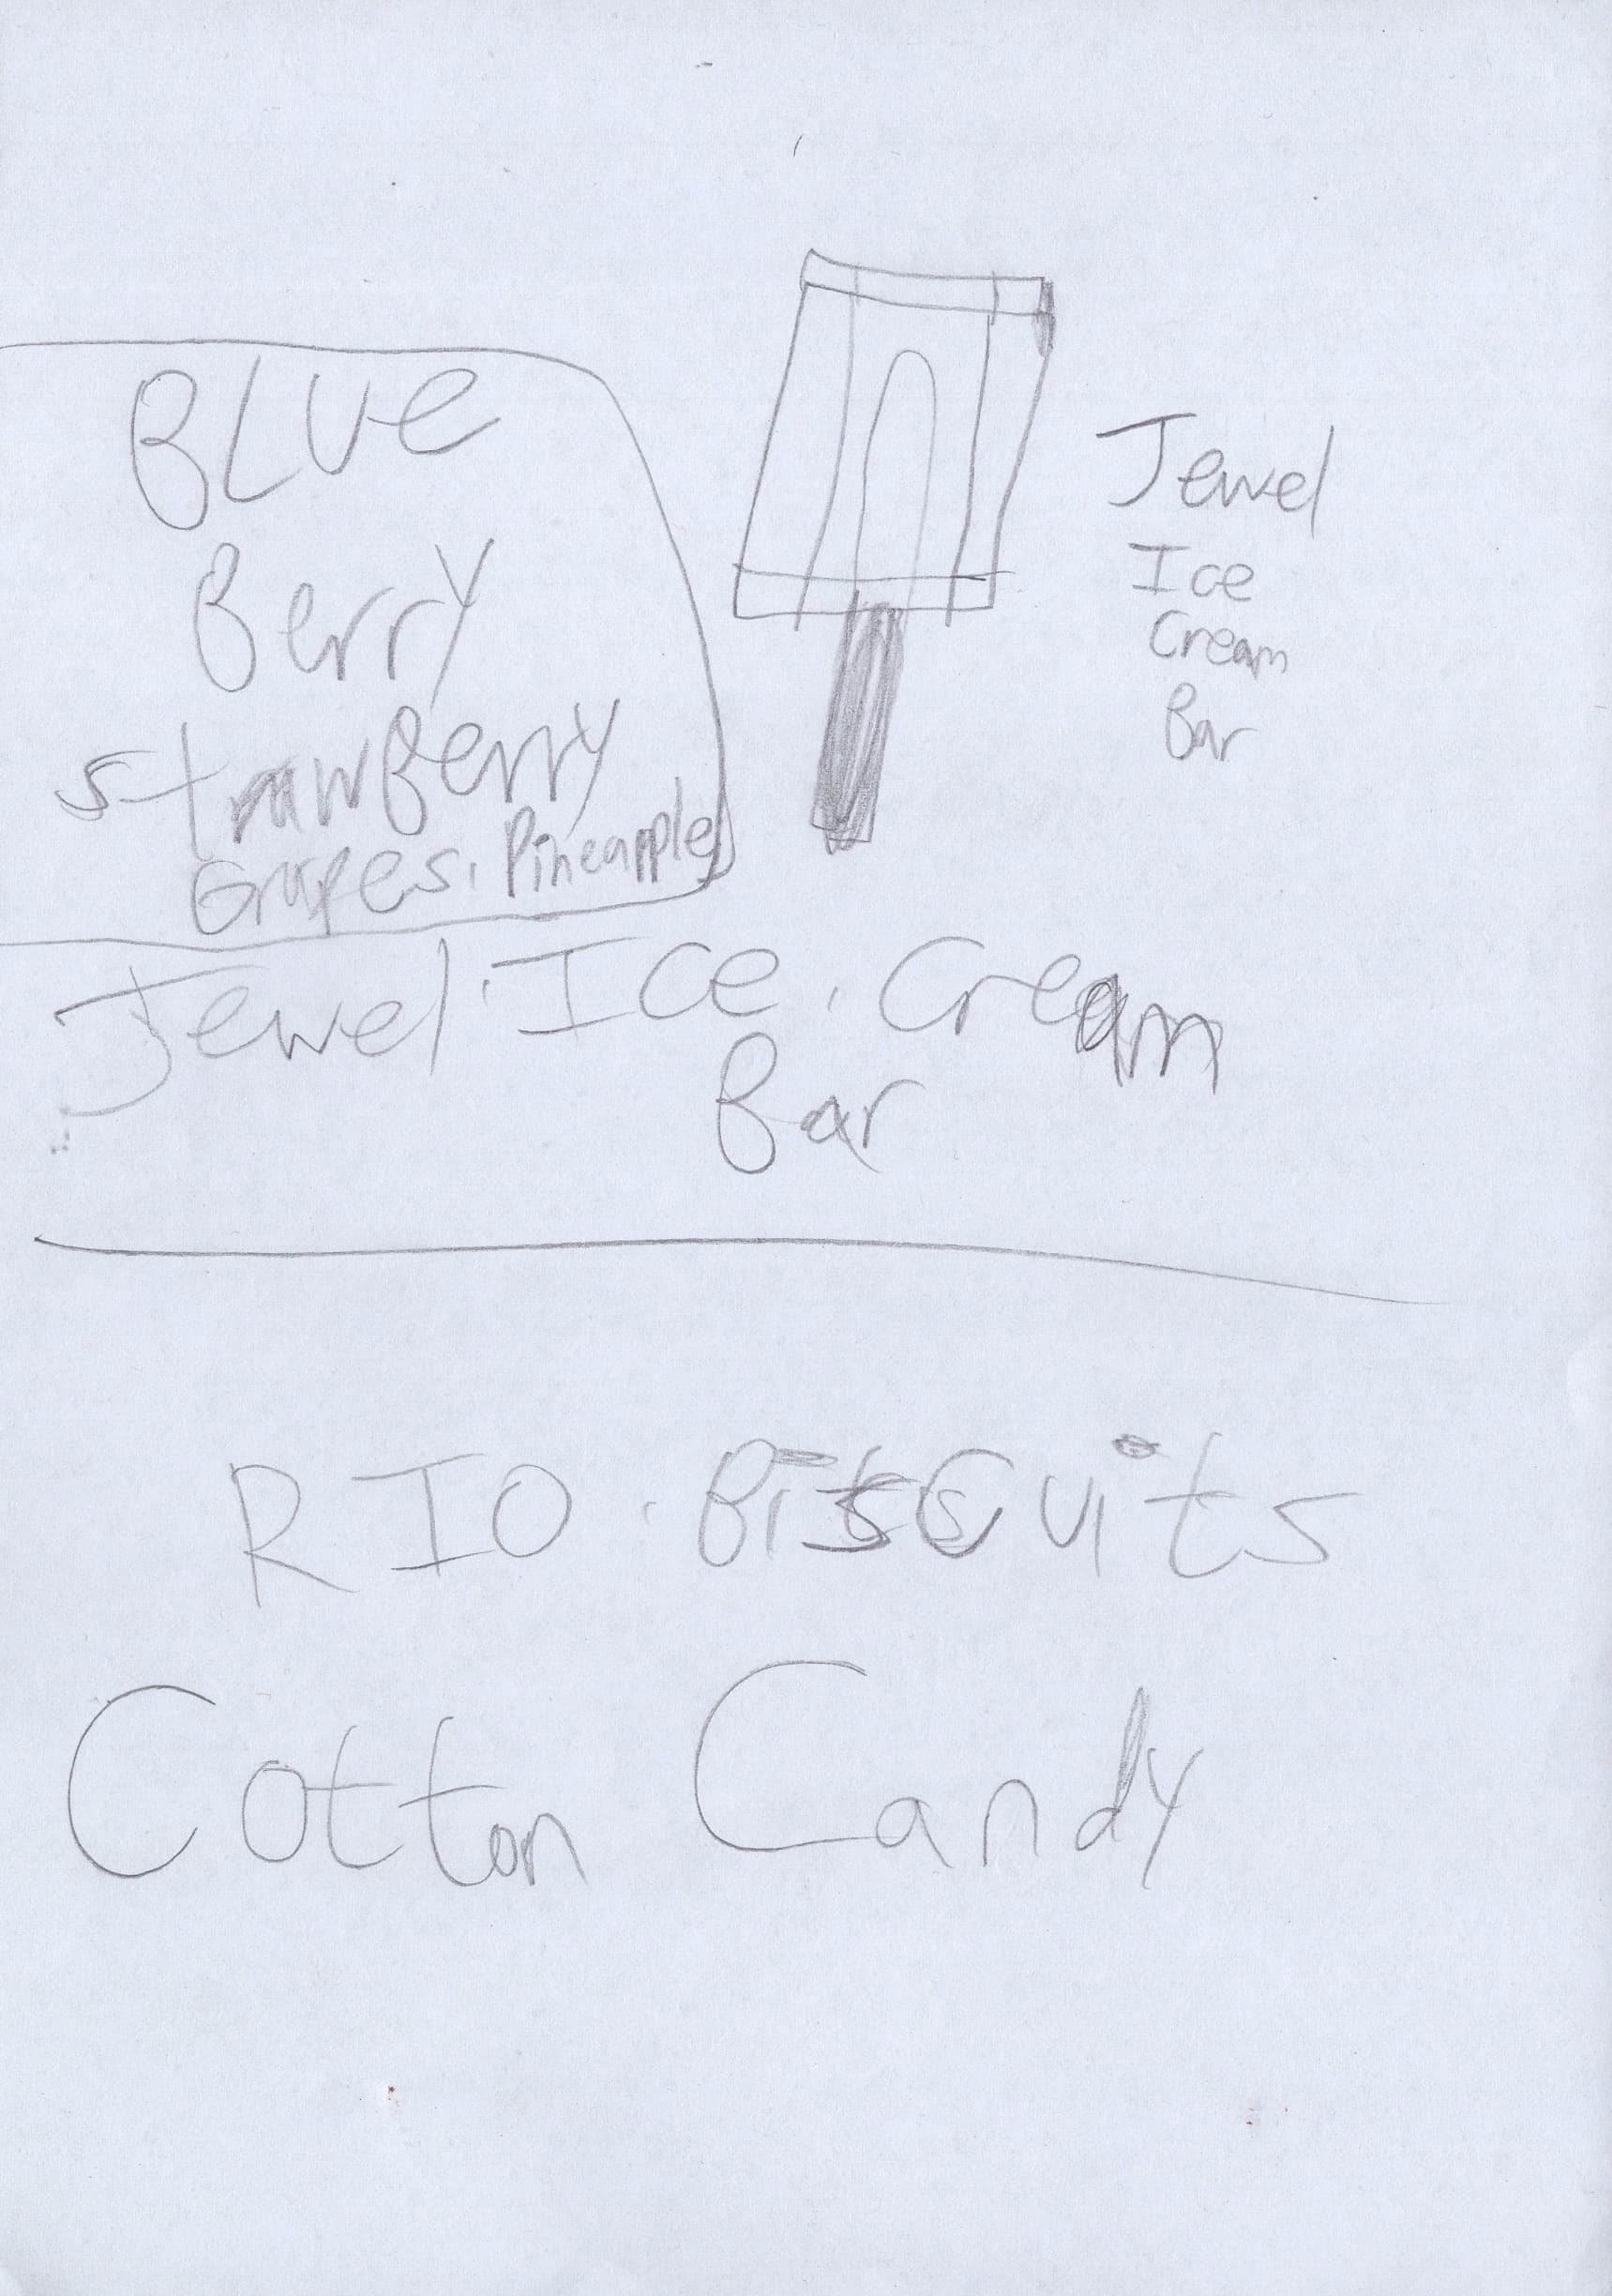 BLUe
Berry
strawBerry
Grapes, Pineapple
Jewel
Ice
Cream
Bar
Jewel Ice Cream
Bar
RIO Biscuits
Cotton Candy